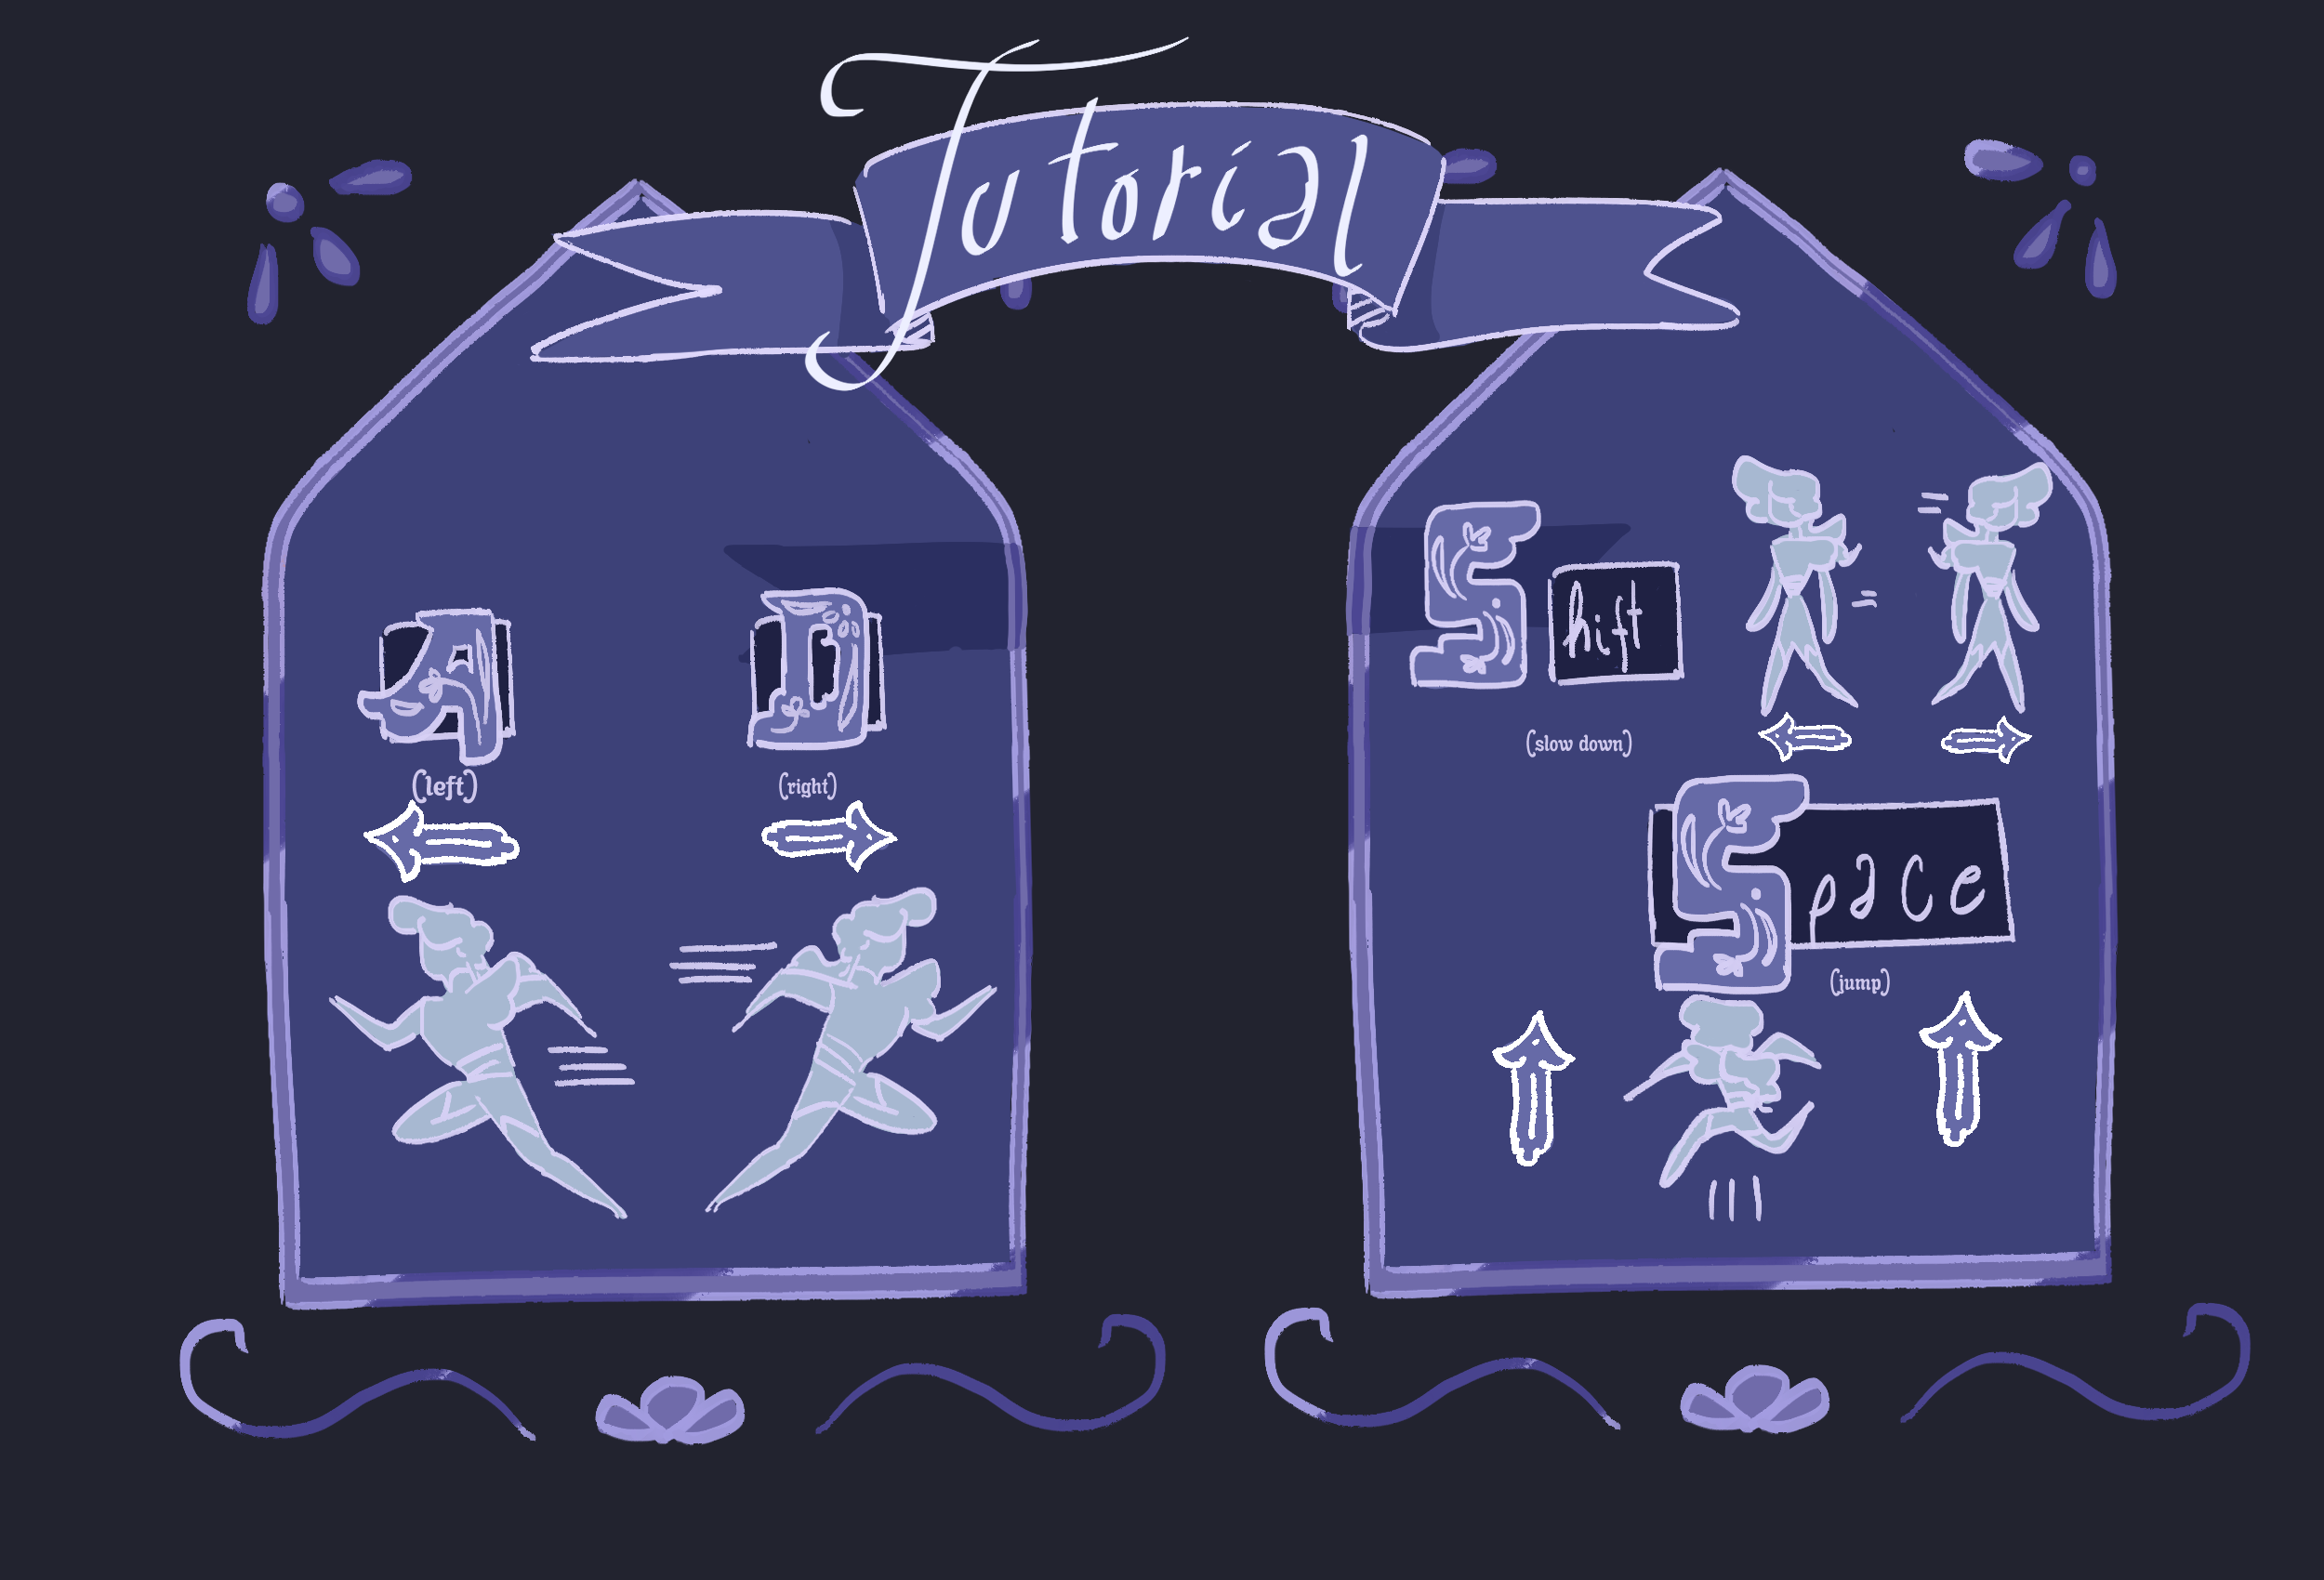 Tutorial
A
(left)
D
(right)
Shift
(slow down)
Space
(jump)